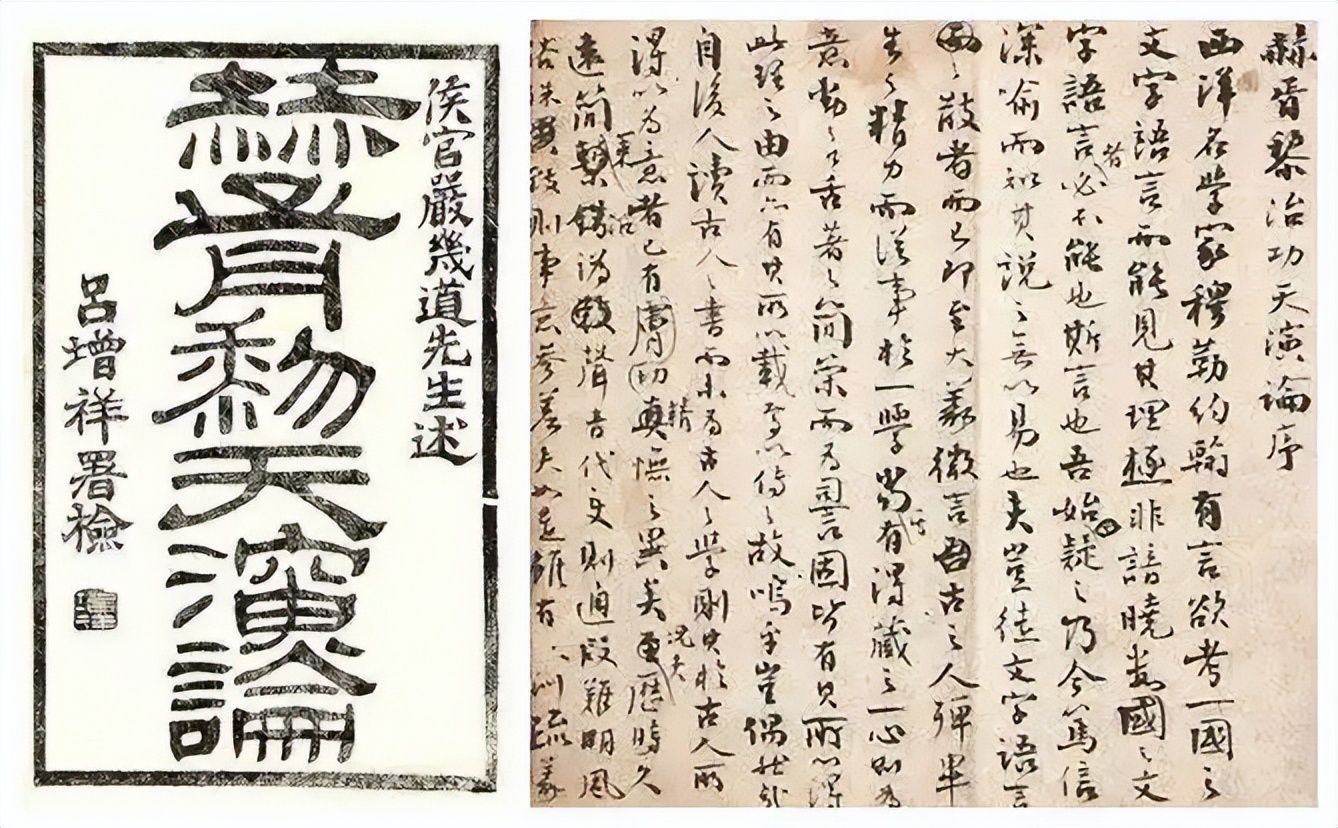 侯官嚴幾道先生述
赫胥黎天演論
呂增祥署檢
赫胥黎治功天演論序
西洋名學家穆勒約翰有言欲考一國之
文字語言而能見其理極非諳曉數國之文
字語言者必不能也斯言也吾始疑之乃今篤信
深喻而知其說之無以易也夫豈徒文字語言
之散者而已即至大義微言古之人殫畢
生之精力而從事於一學當有得藏之一心則為
意動之口舌著之簡策而為書固皆有其所以得
此理之由而亦有其所以載焉以傳之故嗚乎豈偶然哉
自後人讀古人之書而未為古人之學則其於古人所
得以為意者已有膚切精憮之異矣況更歷時久
遠簡 沿譌聲音代變則通叚難明風
俗殊 則事意參差夫如是雖有 訓疏義